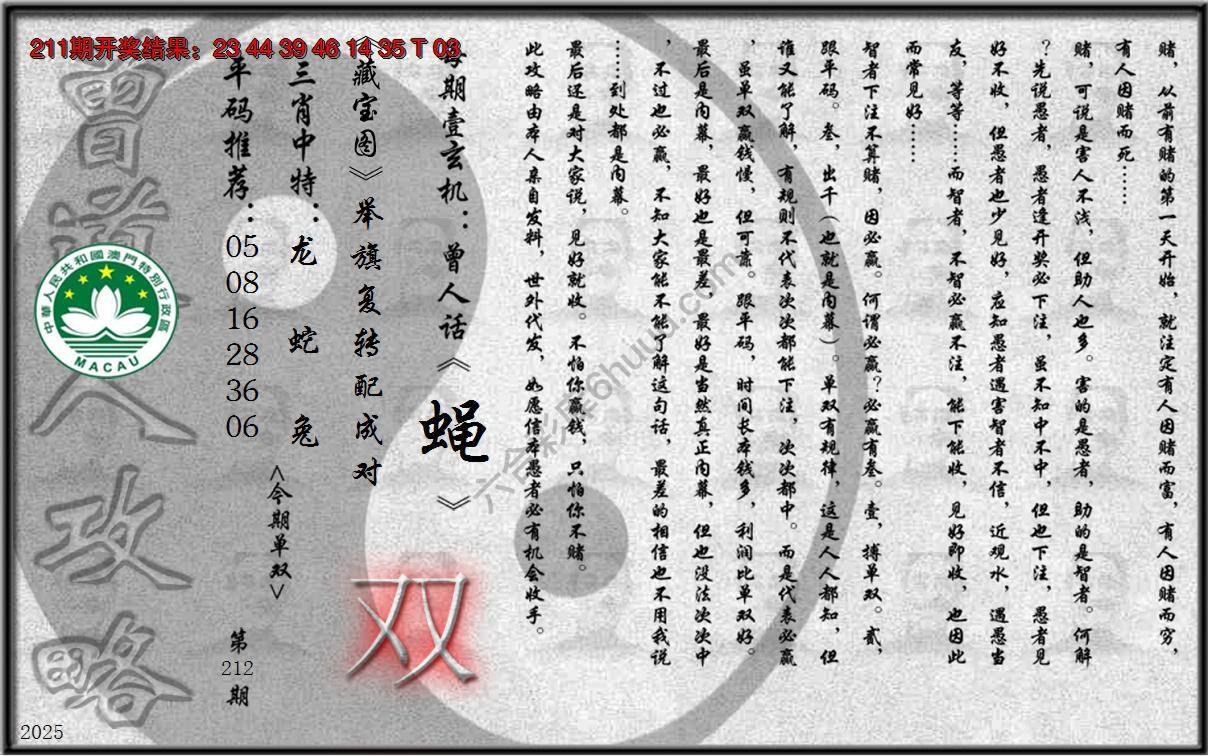 211期开奖结果：23 44 39 46 14 35 T 03
赌，从前有赌的第一天开始，就注定有人因赌而富，有人因赌而穷，
有人因赌而死……
赌，可说是害人不浅，但助人也多。害的是愚者，助的是智者。何解
？先说愚者，愚者逢开奖必下注，虽不知中不中，但也下注，愚者见
好不收，但愚者也少见好，应知愚者遇害智者不信，近观水，遇愚当
友，等等……而智者，不智必赢不注，能下能收，见好即收，也因此
而常见好……
智者下注不算赌，因必赢。何谓必赢？必赢有叁。壹，搏单双。贰，
跟平码。叁，出千（也就是内幕）。单双有规律，这是人人都知，但
谁又能了解，有规则不代表次次都能下注，次次都中。而是代表必赢
，虽单双赢钱慢，但可靠。跟平码，时间长本钱多，利润比单双好。
最后是内幕，最好也是最差，最好是当然真正内幕，但也没法次次中
，不过也必赢，不知大家能不能了解这句话，最差的相信也不用我说
……到处都是内幕。
最后还是对大家说，见好就收。不怕你赢钱，只怕你不赌。
此攻略由本人亲自发料，世外代发，如愿信本愚者必有机会收手。
每期壹玄机：曾人话《蝇》
《藏宝图》举旗复转配成对
三肖中特：龙 蛇 兔
平码推荐：05 08 16 28 36 06
<今期单双>
双
第212期
曾道人攻略
中華人民共和國澳門特別行政區
MACAU
六合彩库6huuu.com
2025